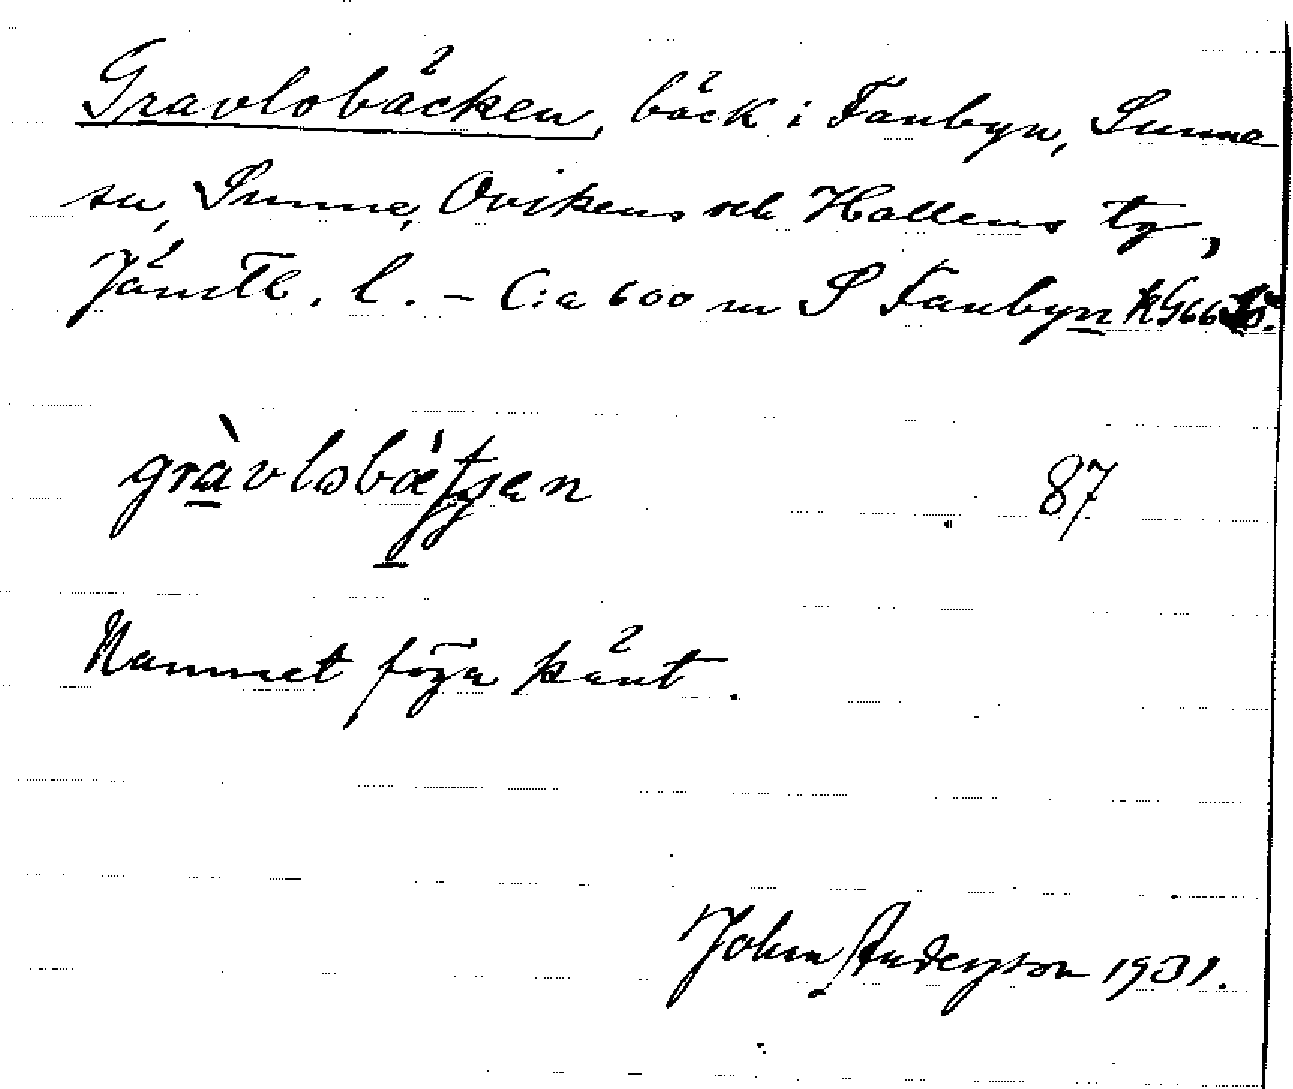 Gravlobäcken, bäck i Fanbyn, Sunne
sn, Sunne, Ovikens och Hallens tg,
Jämtl. l. – C:a 600 m S Fanbyn kG66
gràvlobǽtjen 87
Namnet föga känt.
John Anderson 1931.